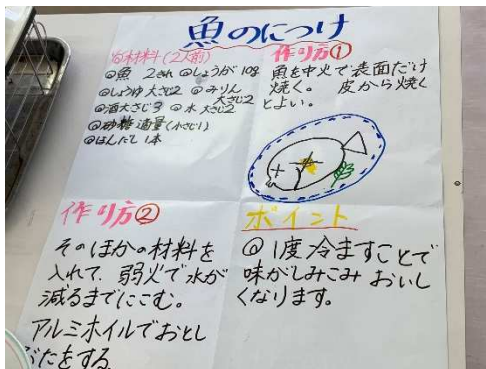 魚のにつけ
材料(2人前)
◎魚 2きれ ◎しょうが 10g
◎しょうゆ 大さじ2 ◎みりん 大さじ2
◎酒大さじ3 ◎水 大さじ2
◎砂糖適量(小さじ1)
◎ほんだし 1本
作り方①
魚を中火で表面だけ
焼く。 皮から焼く
とよい。
作り方②
そのほかの材料を
入れて、弱火で水が
減るまでにこむ。
アルミホイルでおとし
ぶたをする
ポイント
◎1度冷ますことで
味がしみこみ おいし
くなります。